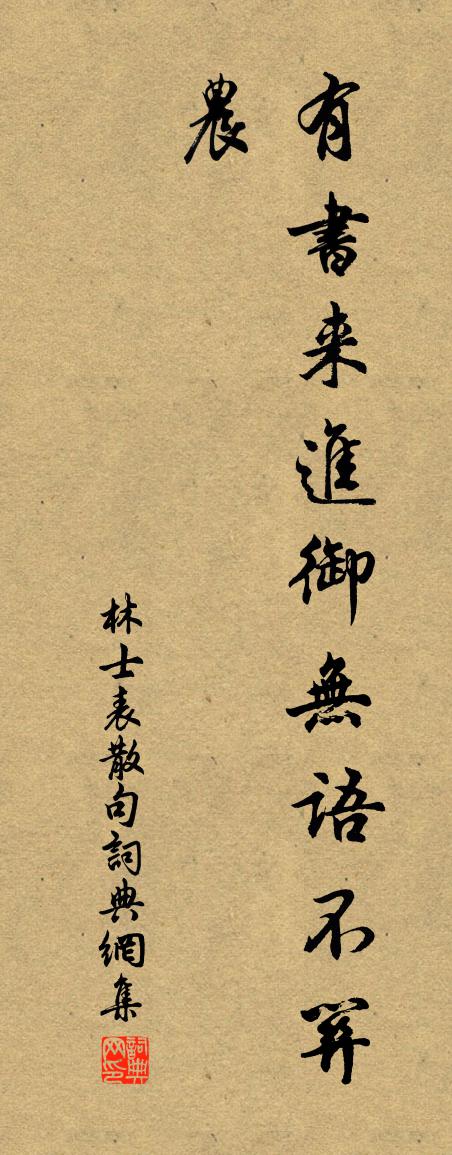 有書来進御無語不關
農
林士表散句詞典網集
詞典
网印